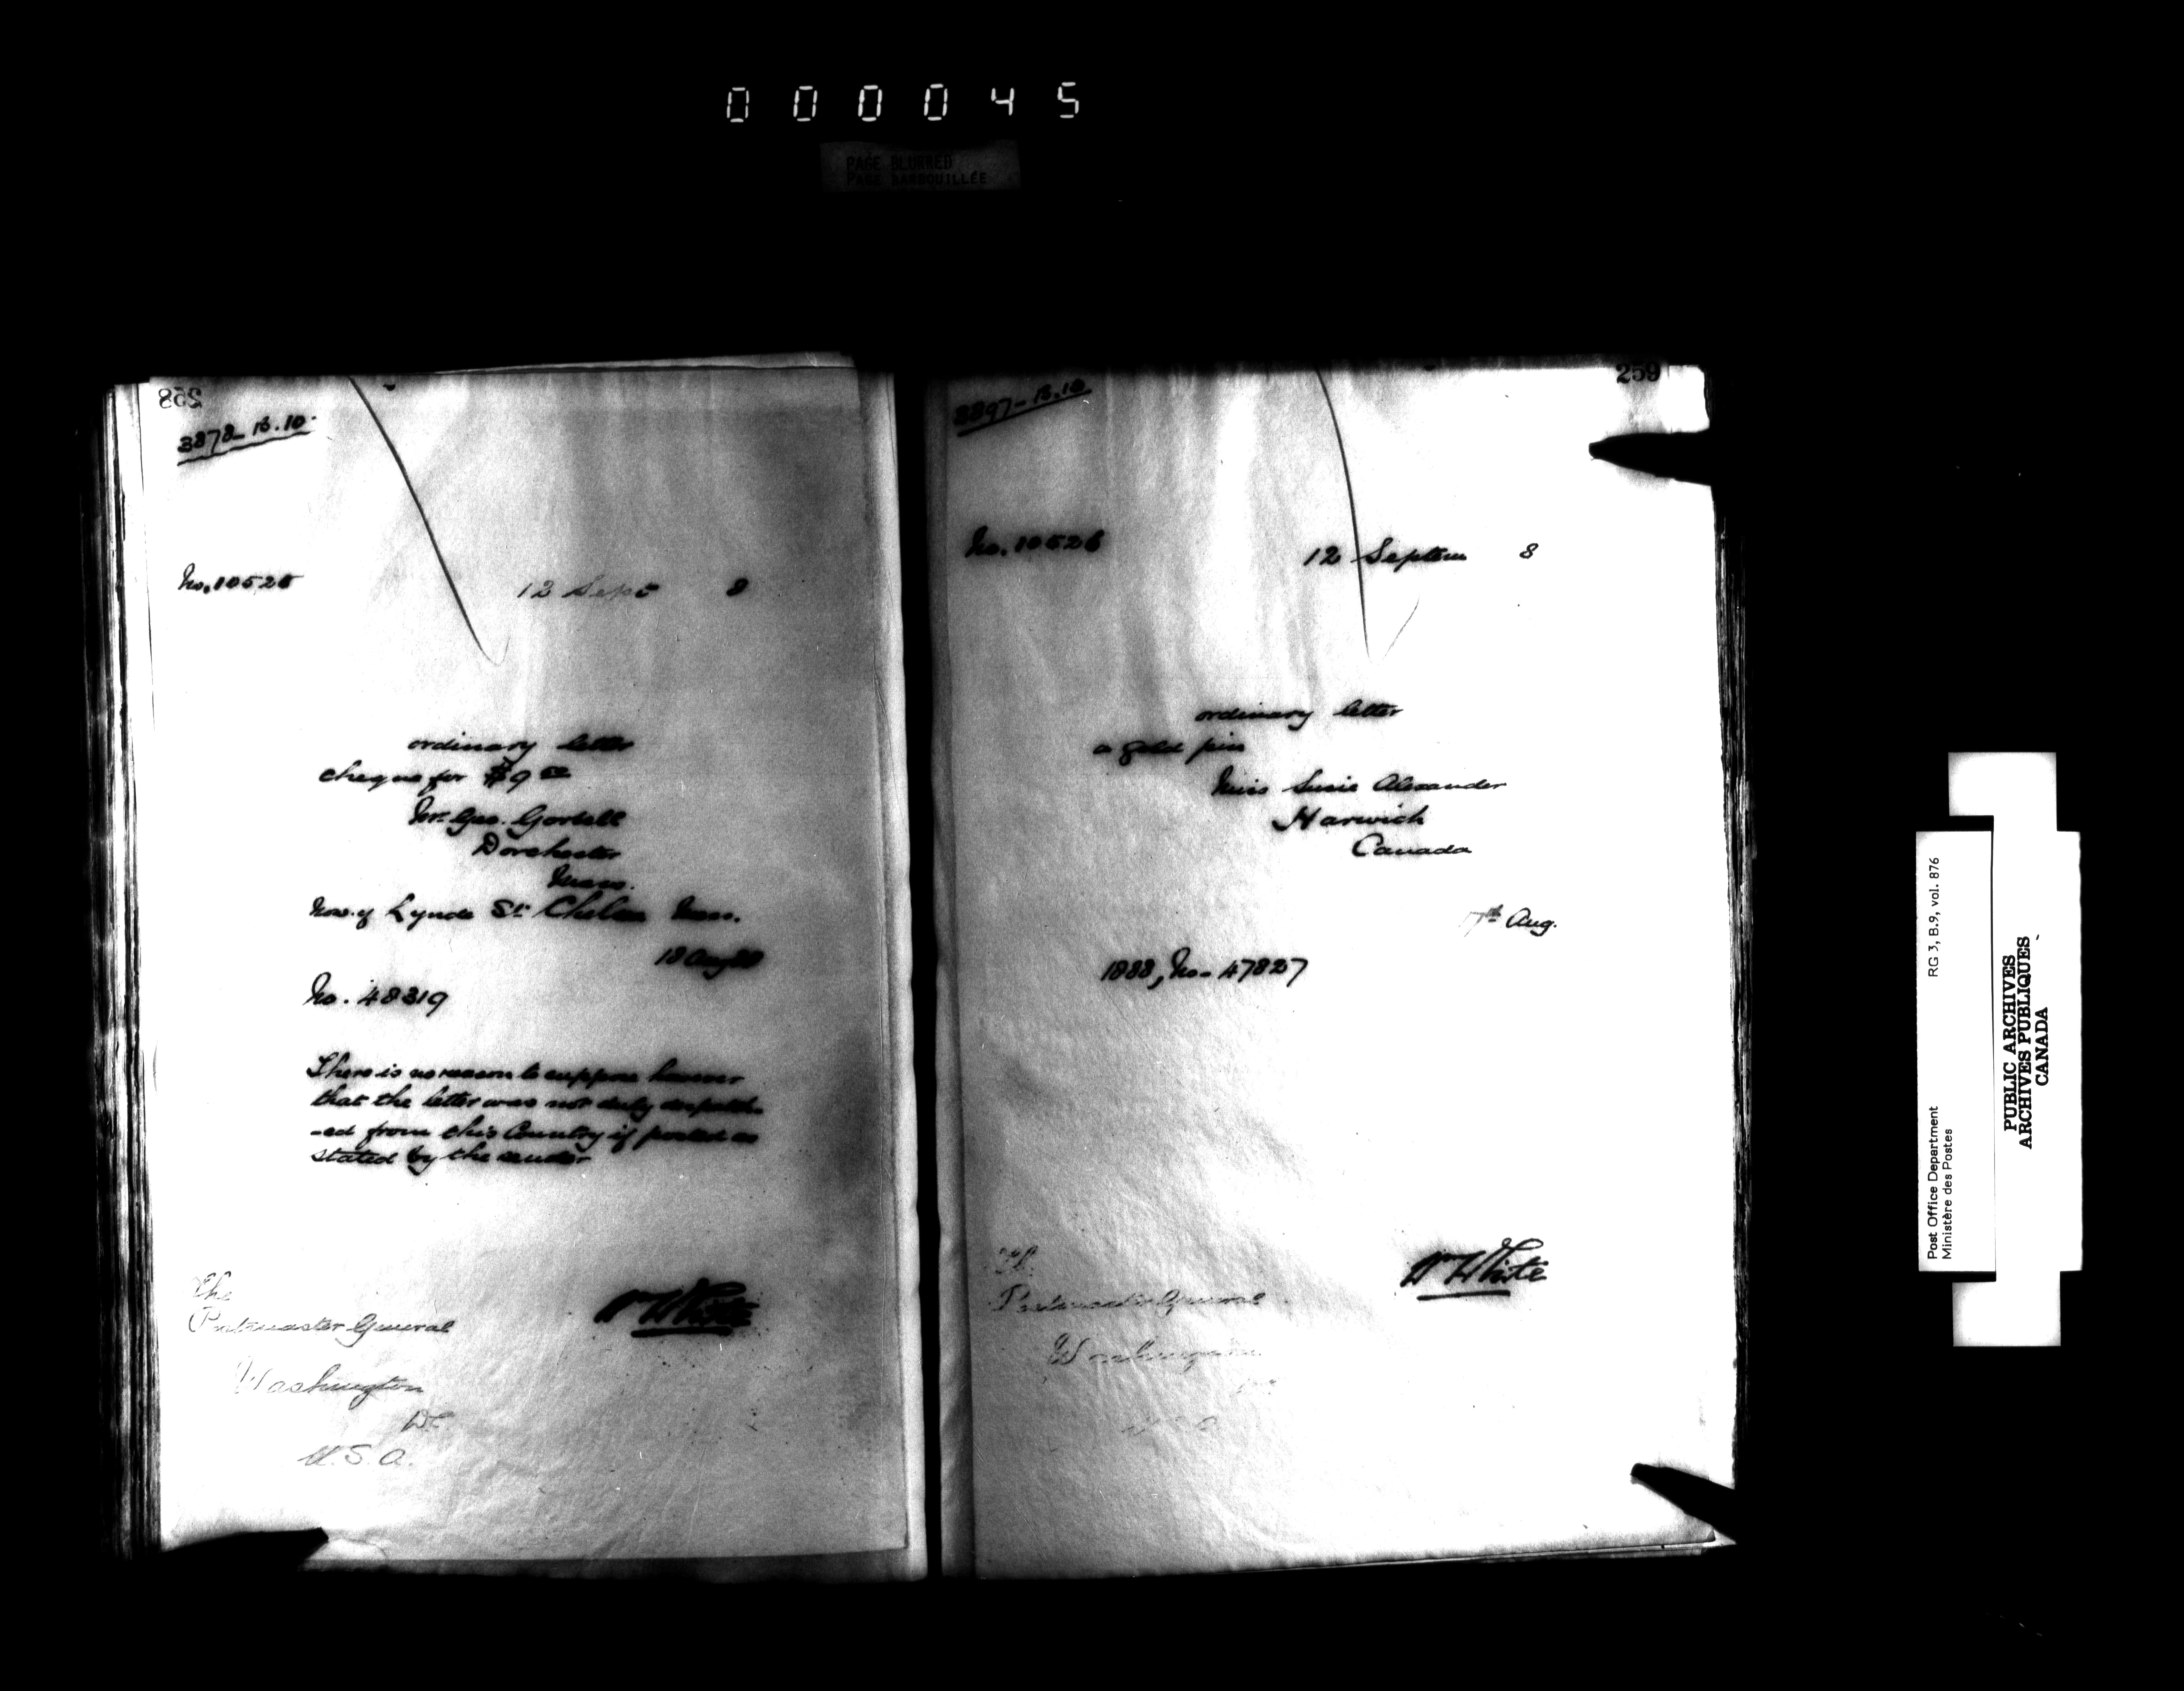 000045
PAGE BLURRED
PAGE BARBOUILLÉE
258
3878-B.10.
No. 10525
12 Sept 8
ordinary letter
cheque for $9.00
Mr. Geo. Gorbell
Dorchester
Mass.
Now of Lynde St. Chelsea Mass.
18 Aug 88
No. 48319
There is no reason to suppose however
that the letter was not duly despatch-
-ed from this Country if posted as
stated by the sender
The
Postmaster General
Washington
DC
U.S.A.
Wm White
259
3897-B.10
No. 10526
12 Septem 8
ordinary letter
a gold pin
Miss Susie Alexander
Harwich
Canada
17th Aug.
1888, No. 47827
Wm White
The
Postmaster General
Washington
U.S.A.
Post Office Department
Ministère des Postes
RG 3, B.9, vol. 876
PUBLIC ARCHIVES
ARCHIVES PUBLIQUES
CANADA